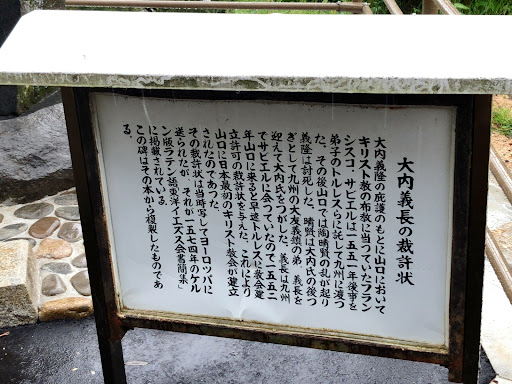 大内義長の裁許状
大内義隆の庇護のもとで山口において
キリスト教の布教に当っていたフラン
シスコ・サビエルは一五五一年後事を
弟子のトルレスらに託して九州に渡っ
た。その後山口では陶晴賢の乱が起り
義隆は討死した。晴賢は大内氏の後つ
ぎとして九州の大友義鎮の弟 義長を
迎えて大内氏をつがした。義長は九州
でサビエルに会っていたので一五五二
年山口に来ると早速トルレスに教会建
立許可の裁許状を与えた。これにより
山口に日本最初のキリスト教会が建立
されたのであった。
その裁許状は当時写してヨーロッパに
送られたが、それが一五七四年のケル
ン版ラテン語東洋イエズス会書簡集」
に掲載されている。
この碑はその本から複製したものであ
る。